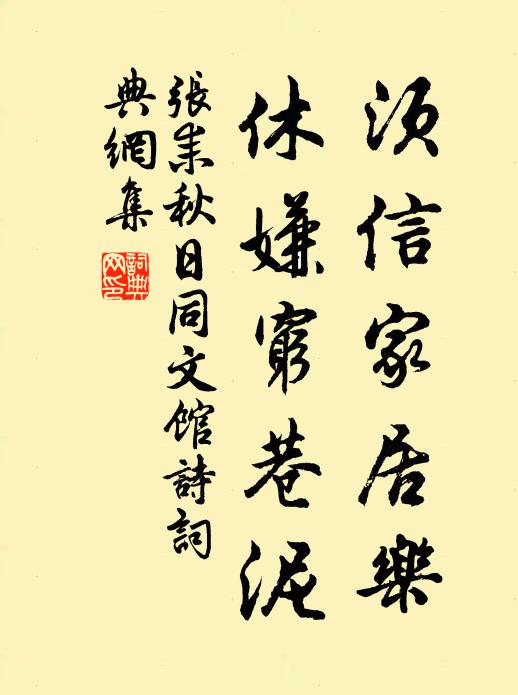 須信家居樂
休嫌窮巷泥
張耒秋日同文館詩詞
典網集
詞典網印